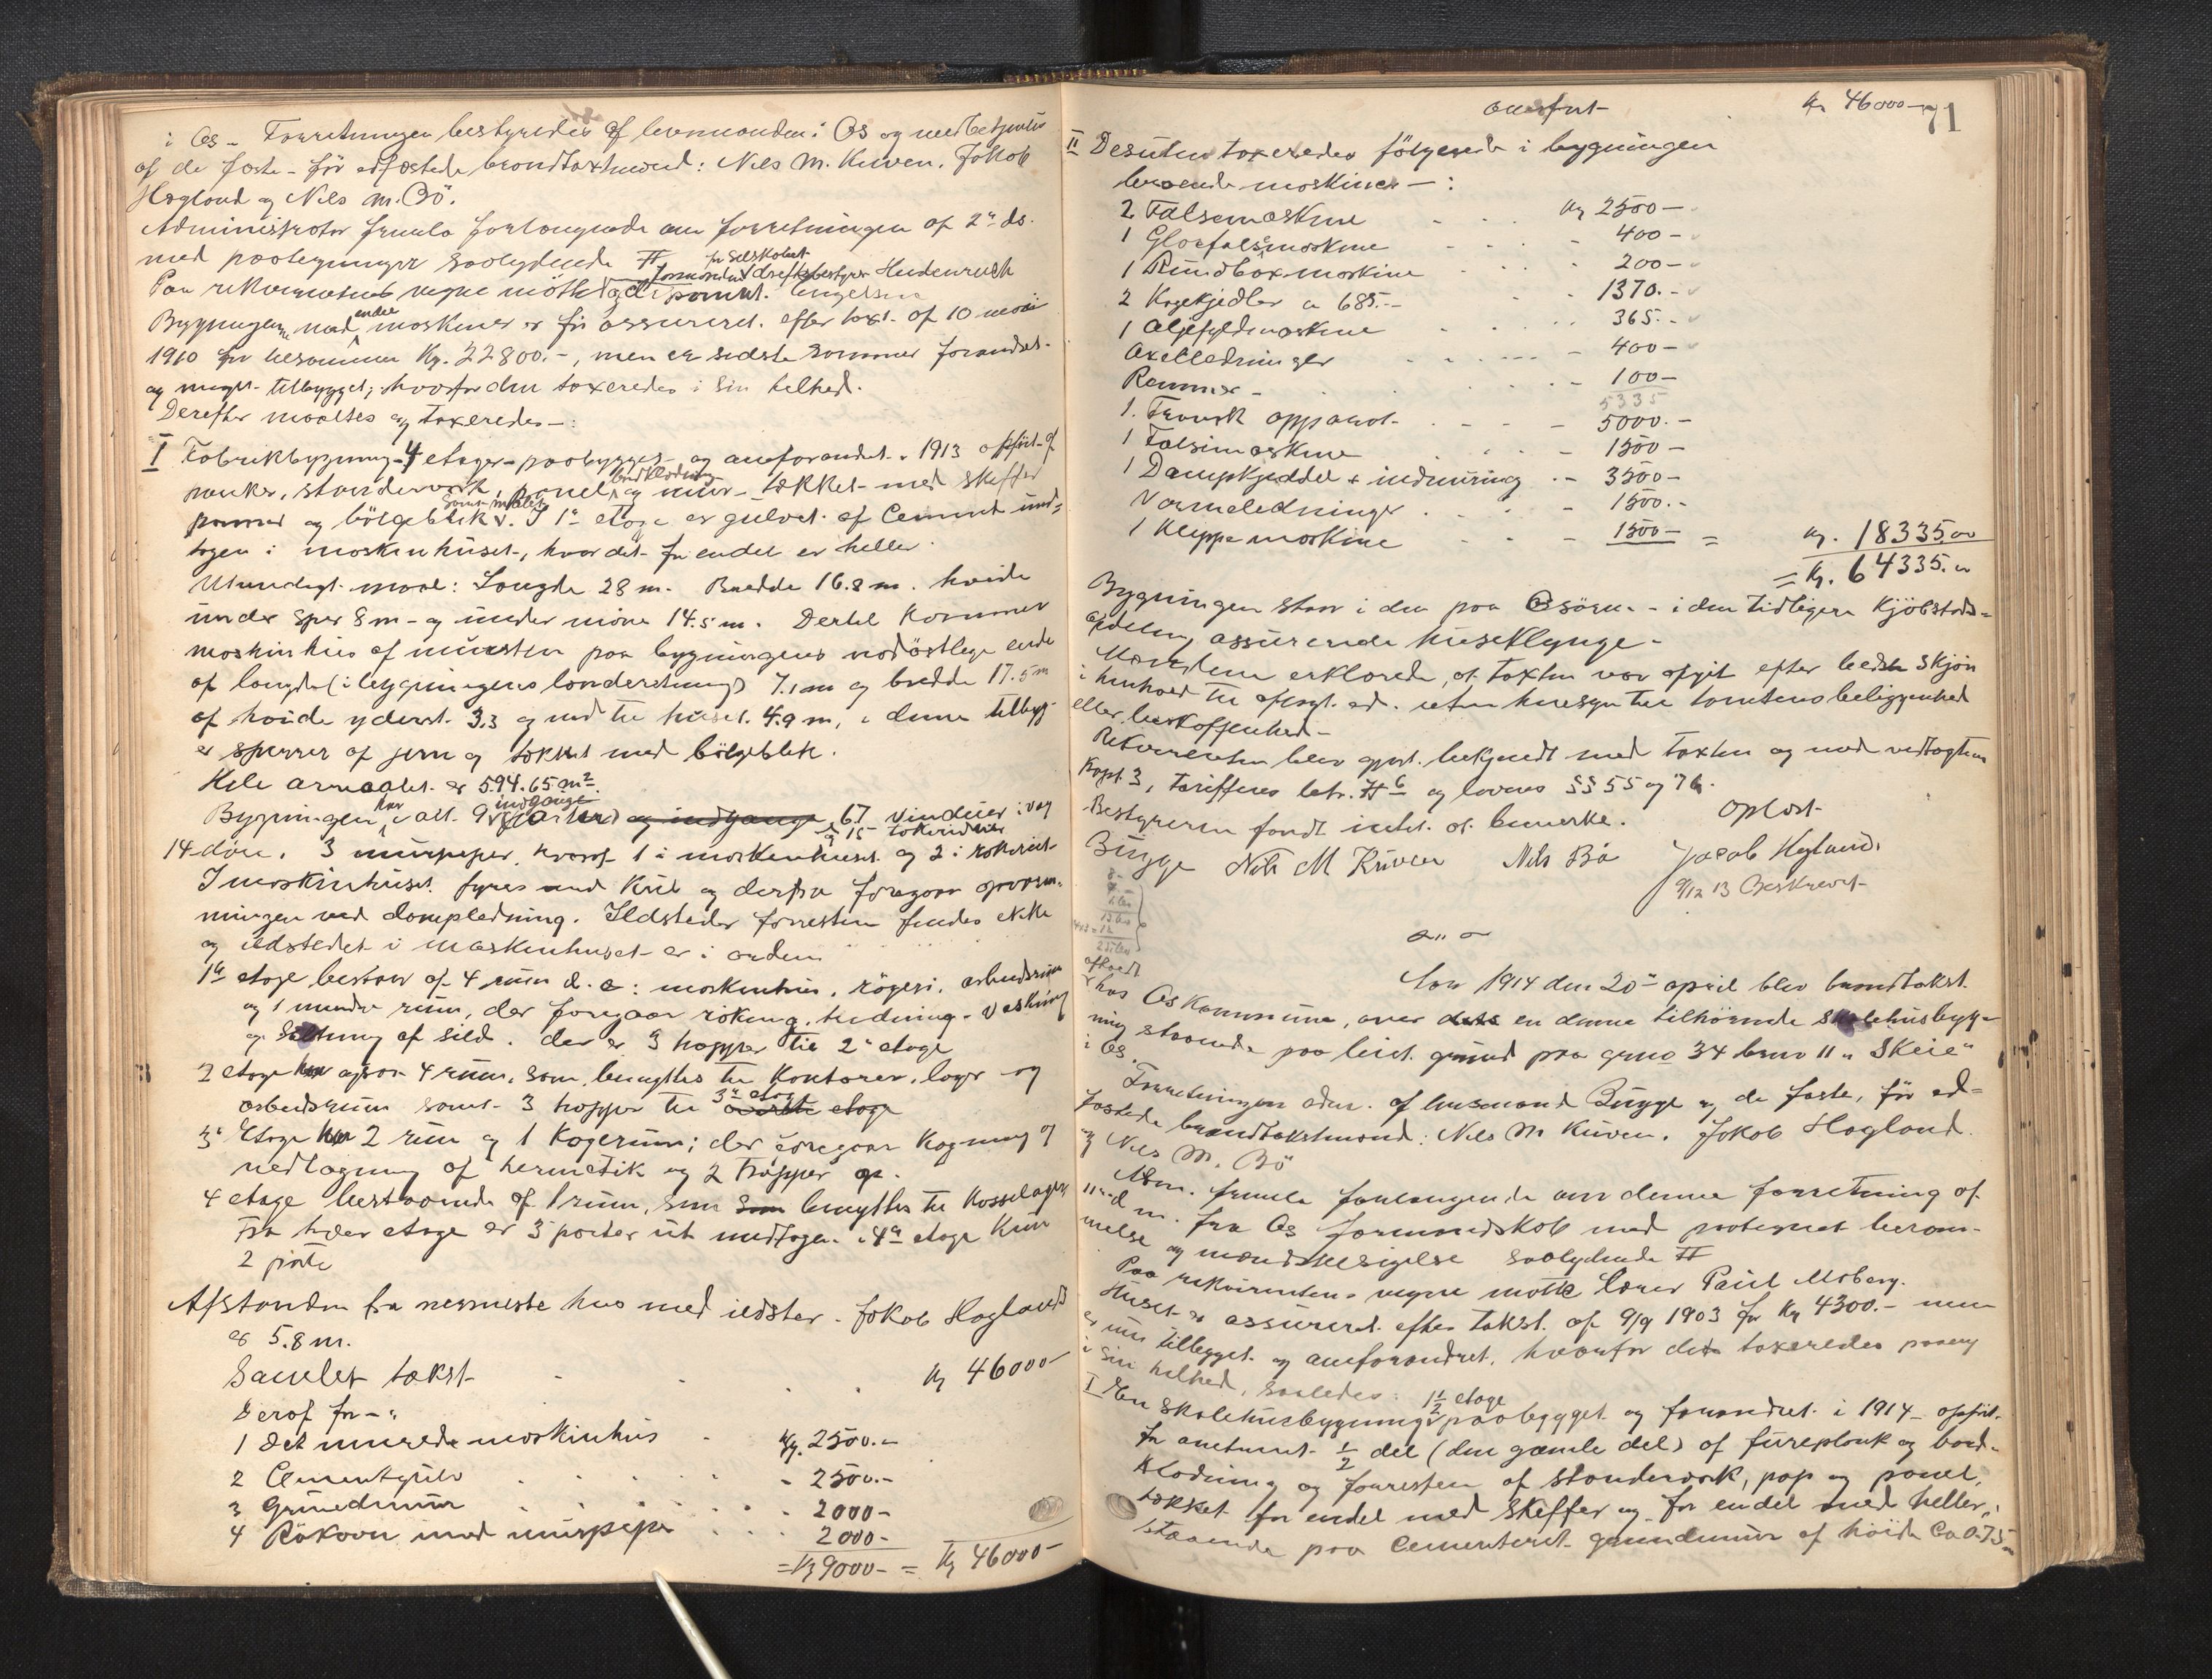 i Os - Forretningen bestyredes af lensmanden i Os og medbetjentes
af de faste - før edfæstede brandtaxtmænd: Nils M. Kuven, Jakob
Hagland og Nils M. Bö.
Administrator fremla forlangende om forretningen af 2n ds.
med paategninger saalydende #
for selskabet
Paa rekvirentens vegne mötte formanden driftsbestyrer Heidenreich
Bygningen med endel maskiner er før assureret efter taxt af 10 mai
1910 for tilsammen Kr. 22800.-, men er sidste sommer forandret
og meget tilbygget; hvorfor den taxeredes i sin helhed.
Derefter maaltes og taxeredes -:
I Fabrikbygning 4 etager - paabygget og omforandret 1913 opfört af
planker, standerverk, panel bordklædning og mur - tækket med skiffer
panner og bölgeblik samt malet. I 1ste etage er gulvet af Cement und=
tagen i maskinhuset, hvor det for endel er heller.
Utvendigt maal: Længde 28 m. Bredde 16.8 m. høide
under sper 8 m - og under möne 14.5 m. Dertil kommer
maskinhus af mursten paa bygningens nordöstlige ende
af længde (i bygningens længderetning) 7.1 m og bredde 17.5 m
af høide yderst 3.3 og ind til huset 4.9 m, i denne tilbyg-
er sperrer af jern og tækket med bölgeblik.
Hele arealet er 594.65 m2
Bygningen har i alt 9 indgange og indgange 67 vinduer i væg
og 15 takvinduer
14 döre, 3 murpiper, hvoraf 1 i maskinhuset og 2 i rökeriet
I maskinhuset fyres med kul og derfra foregaar opvarm-
ningen ved dampledning. Ildsteder forresten findes ikke
og ildstedet i maskinhuset er i orden
1ste etage bestaar af 4 rum d.e: maskinhus, rögeri, arbeidsrum
og 1 mindre rum, der foregaar röking, tredning - vasking
og saltning af sild. der er 3 trapper til 2n etage
2 etage har ogsaa 4 rum, som benyttes til kontorer, lager og
arbeidsrum samt 3 trapper til 3n etage överste etage
3n Etage har 2 rum og 1 Kogerum; der foregaar kogning og
nedlægning af hermetik og 2 trapper op.
4 etage bestaaende af 1 rum, som som benyttes til kasselager
Fra hver etage er 3 porter ut undtagen i 4de etage kun
2 porte
Afstanden fra nærmeste hus med ildster - Jakob Haglands
er 5.8 m.
Samlet takst - - - Kr 46000-
Deraf for -:
1 Det murede maskinhus - Kr. 2500.-
2 Cementgulv - 2500.-
3 Grundmur - 2000-
4 Rökovn med murpipe - 2000-
= Kr 9000- = Kr 46000-
Overfört Kr 46000- 71
II Desuten taxeredes fölgende i bygningen
beroende maskiner -:
2 Falsemaskine Kr 2500-
1 Glorfalsemaskine 400-
1 Rundboxmaskine 200-
2 Kogekjedler a 685.- 1370.-
1 Oljefyldmaskine 365.-
Axelledninger 400-
Rammer - 100-
5335
1. Fransk apparat - 5000.-
1 Falsimaskine 1500-
1 Dampkjeddel + indmuring - 3500-
Varmeledninger 1500.-
1 Klippemaskine - 1500- = Kr. 18335.00
= Kr. 64335.00
Bygningen staar i den paa Osören - i den tidligere Kjöbstads=
afdeling assurerede husklynge.
Mændene erklærede, at taxten var afgit efter bedste skjön
i henhold til aflagt ed. uten hensyn til tomtens beliggenhed
eller beskaffenhed -
Rekvirenten blev gjort bekjendt med taxten og med vedtægtens
kapt. 3, tariffens litr. H 6 og lovens §§ 55 og 76.
Bestyreren fandt intet at bemerke. Oplæst
Bugge Nils M Kuven Nils Bö Jacob Hagland
9/12 13 Beskrevet
o " o
Aar 1914 den 20n april blev brandtakst
afholdt
hos Os kommune, over dets en denne tilhörende skolehusbygg-
ning staaende paa leiet grund paa grno 34 brno 11 "Skeie"
i Os.
Forretningen adm. af lensmand Bugge og de faste, før ed-
fæstede brandtakstmænd: Nils M Kuven, Jakob Hagland
og Nils M. Bö
Adm. fremla forlangende om denne forretning af
11te d.m. fra Os formandskab med paategnet beram-
melse og mændstilsigelse saalydende #
Paa rekvirentens vegne mötte lærer Paul Moberg.
Huset er assureret efter takst af 9/9 1903 for Kr 4300.- men
er nu tilbygget og omforandret, hvorfor det taxeredes paany
i sin helhed, saaledes:
I En skolehusbygning 1 1/2 etage paabygget og forandret i 1914 - opfört
for omtrent 1/2 del (den gamle del) af fureplank og bord-
klædning og forresten af standerverk, pap og panel,
tækket for endel med skiffer og for endel med heller,
staaende paa Cementeret grundmur af höide ca 0.75 m